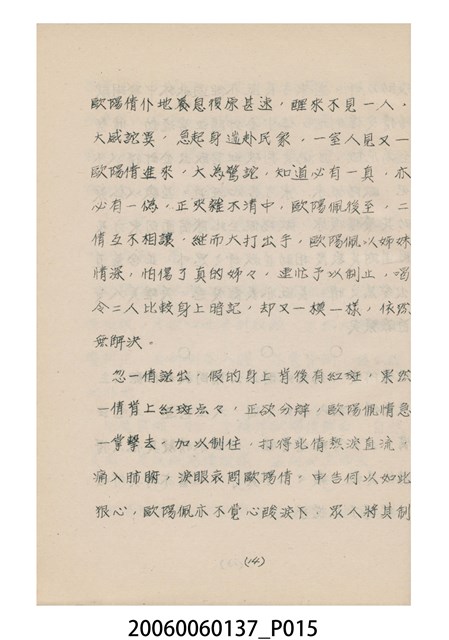 歐陽倩仆地養息復原甚速，醒來不見一人，
大感詫異，急起身遄赴民家，一室人見又一
歐陽倩進來，大為驚詫，知道必有一真，亦
必有一偽，正夾纏不清中，歐陽佩後至，二
倩互不相讓，繼而大打出手，歐陽佩以姊妹
情深，怕傷了真的姊々，連忙予以制止，喝
令二人比較身上暗記，却又一模一樣，依然
無解決。
忽一倩說出，假的身上背後有紅斑，果然
一倩背上紅斑点々，正欲分辯，歐陽佩情急
一掌擊去，加以制住，打得此倩熱淚直流，
痛入肺腑，淚眼哀問歐陽倩，申告何以如此
狠心，歐陽佩亦不覺心酸淚下，眾人將其制
(14)
20060060137_P015